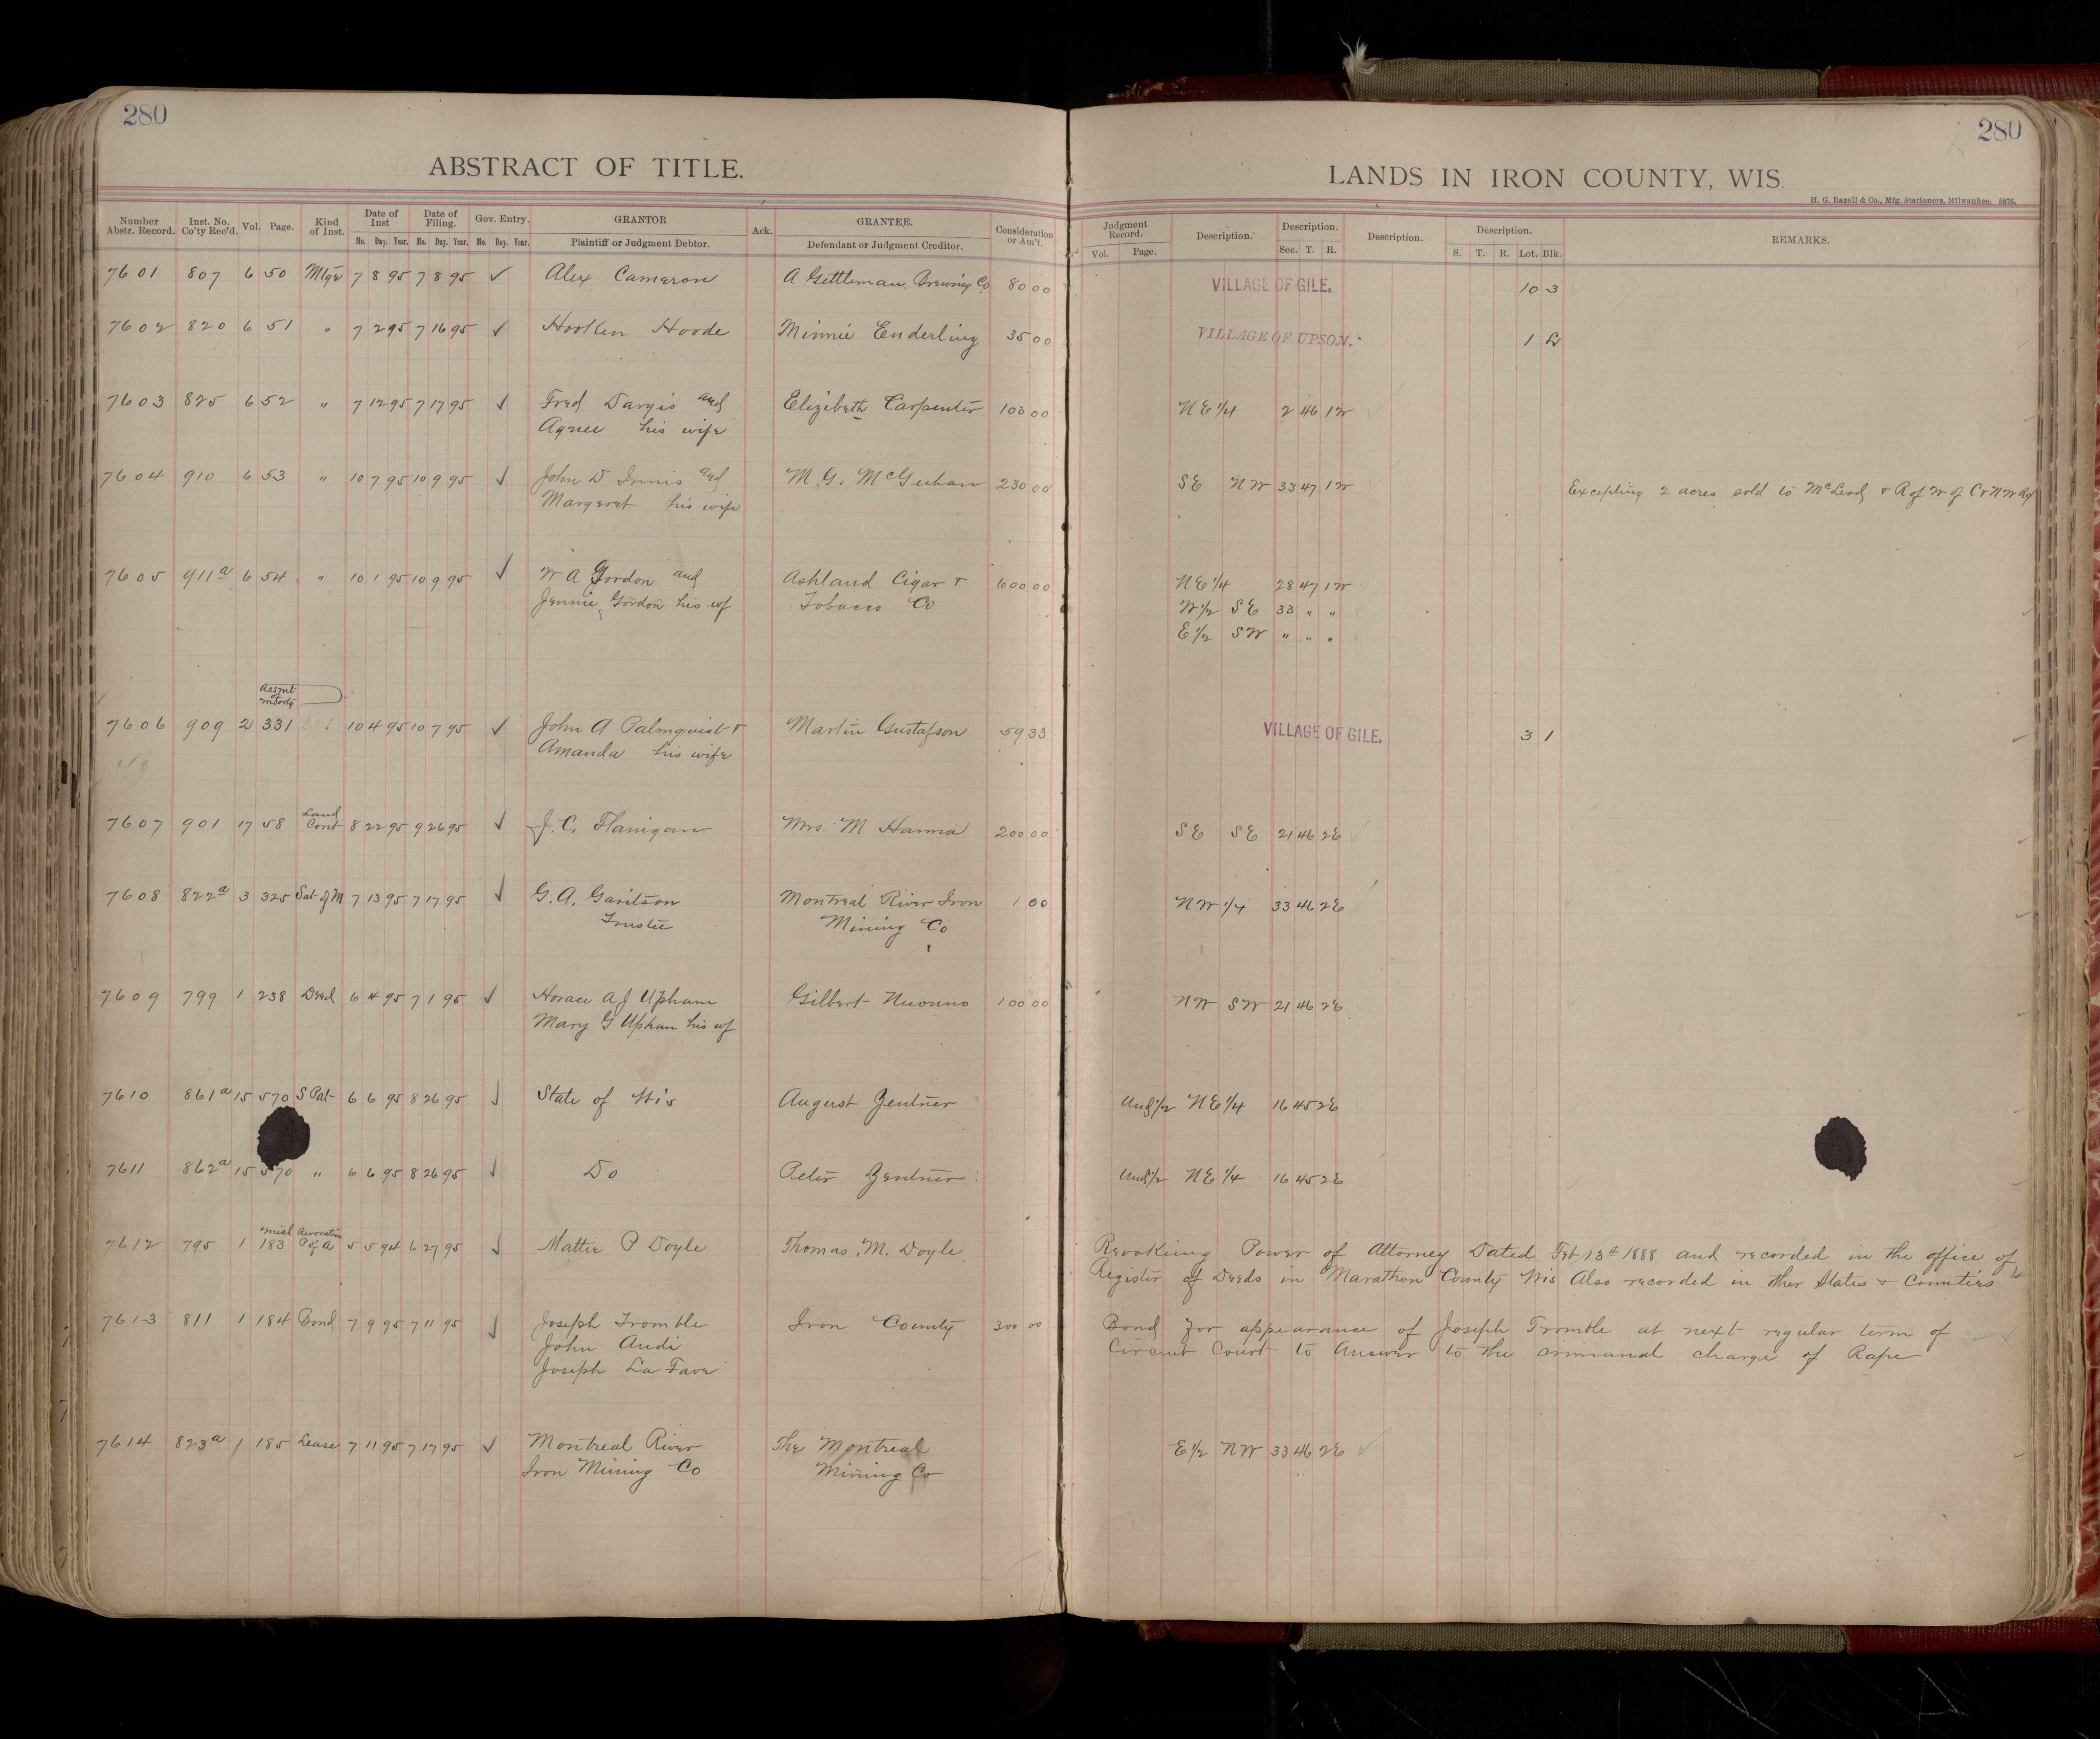 280
280
ABSTRACT OF TITLE.
LANDS IN IRON COUNTY, WIS.
H. G. Razall & Co., Mfg. Stationers, Milwaukee. 5876.
Number Abstr. Record. Inst. No. Co'ty Rec'd. Vol. Page. Kind of Inst. Date of Inst Mo. Day. Year. Date of Filing. Mo. Day. Year. Gov. Entry. Mo. Day. Year. GRANTOR Plaintiff or Judgment Debtor. Ack. GRANTEE. Defendant or Judgment Creditor. Consideration or Am't. Judgment Record. Vol. Page. Description. Description. Sec. T. R. Description. Description. S. T. R. Lot. Blk. REMARKS.
7601 807 6 50 Mtge 7 8 95 7 8 95 ✓ Alex Cameron A Gettleman Brewing Co 80 00 VILLAGE OF GILE. 10 3
7602 820 6 51 " 7 2 95 7 16 95 ✓ Hooken Hoode Minnie Enderling 35 00 VILLAGE OF UPSON. 1
7603 825 6 52 " 7 12 95 7 17 95 ✓ Fred Dargis and Elizibeth Carpenter 100 00 NE 1/4 2 46 1W
Agnes his wife
7604 910 6 53 " 10 7 95 10 9 95 ✓ John D Innis and M. G. McGeehan 230 00 SE NW 33 47 1W Excepting 2 acres sold to McLeod & R of W of C & N W Ry
Margaret his wife
7605 911a 6 54 " 10 1 95 10 9 95 ✓ W A Gordon and Ashland Cigar & 600 00 NE 1/4 28 47 1W
Jennie Gordon his wf Tobacco Co W 1/2 SE 33 " "
E 1/2 SW " " "
Assmt of mtg
7606 909 2 331 10 4 95 10 7 95 ✓ John A Palmquist & Martin Gustafson 59 33 VILLAGE OF GILE. 3 1
Amanda his wife
7607 901 17 58 Land Cont 8 22 95 9 26 95 ✓ J. C. Flanigan Mrs M Hanna 200 00 SE SE 21 46 2E
7608 822a 3 325 Sat of M 7 13 95 7 17 95 ✓ G. A. Garitson Montreal River Iron 1 00 NW 1/4 33 46 2E
Trustee Mining Co
7609 799 1 238 Deed 6 4 95 7 1 95 ✓ Horace A J Upham Gilbert Nuonno 100 00 NW SW 21 46 2E
Mary G Upham his wf
7610 861a 15 570 S Pat 6 6 95 8 26 95 ✓ State of Wis August Zentner Und 1/2 NE 1/4 16 45 2E
7611 862a 15 570 " 6 6 95 8 26 95 ✓ Do Peter Zentner Und 1/2 NE 1/4 16 45 2E
7612 795 1 Misl 183 Revocation P of A 5 5 94 6 27 95 ✓ Mattie P Doyle Thomas M. Doyle Revoking Power of Attorney Dated Feb 13th 1888 and recorded in the office of
Register of Deeds in Marathon County Wis Also recorded in other States & Counties
7613 811 1 184 Bond 7 9 95 7 11 95 ✓ Joseph Tromble Iron County 300 00 Bond for appearance of Joseph Tromble at next regular term of
John Audi Circuit Court to Answer to the crimianal charge of Rape
Joseph La Fave
7614 823a 1 185 Lease 7 11 95 7 17 95 ✓ Montreal River The Montreal E 1/2 NW 33 46 2E
Iron Mining Co Mining Co